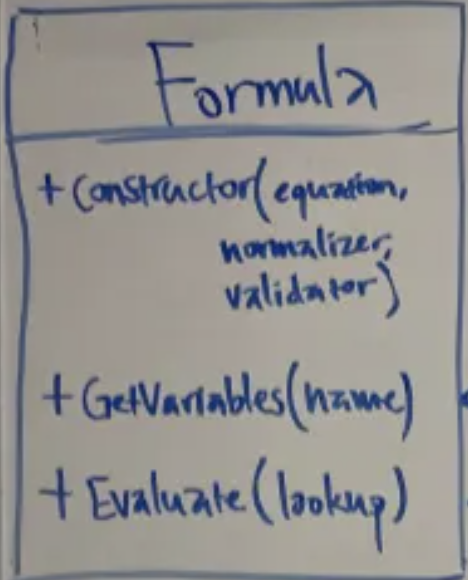 Formula
+ Constructor(equation,
normalizer,
validator)
+ GetVariables(name)
+ Evaluate(lookup)